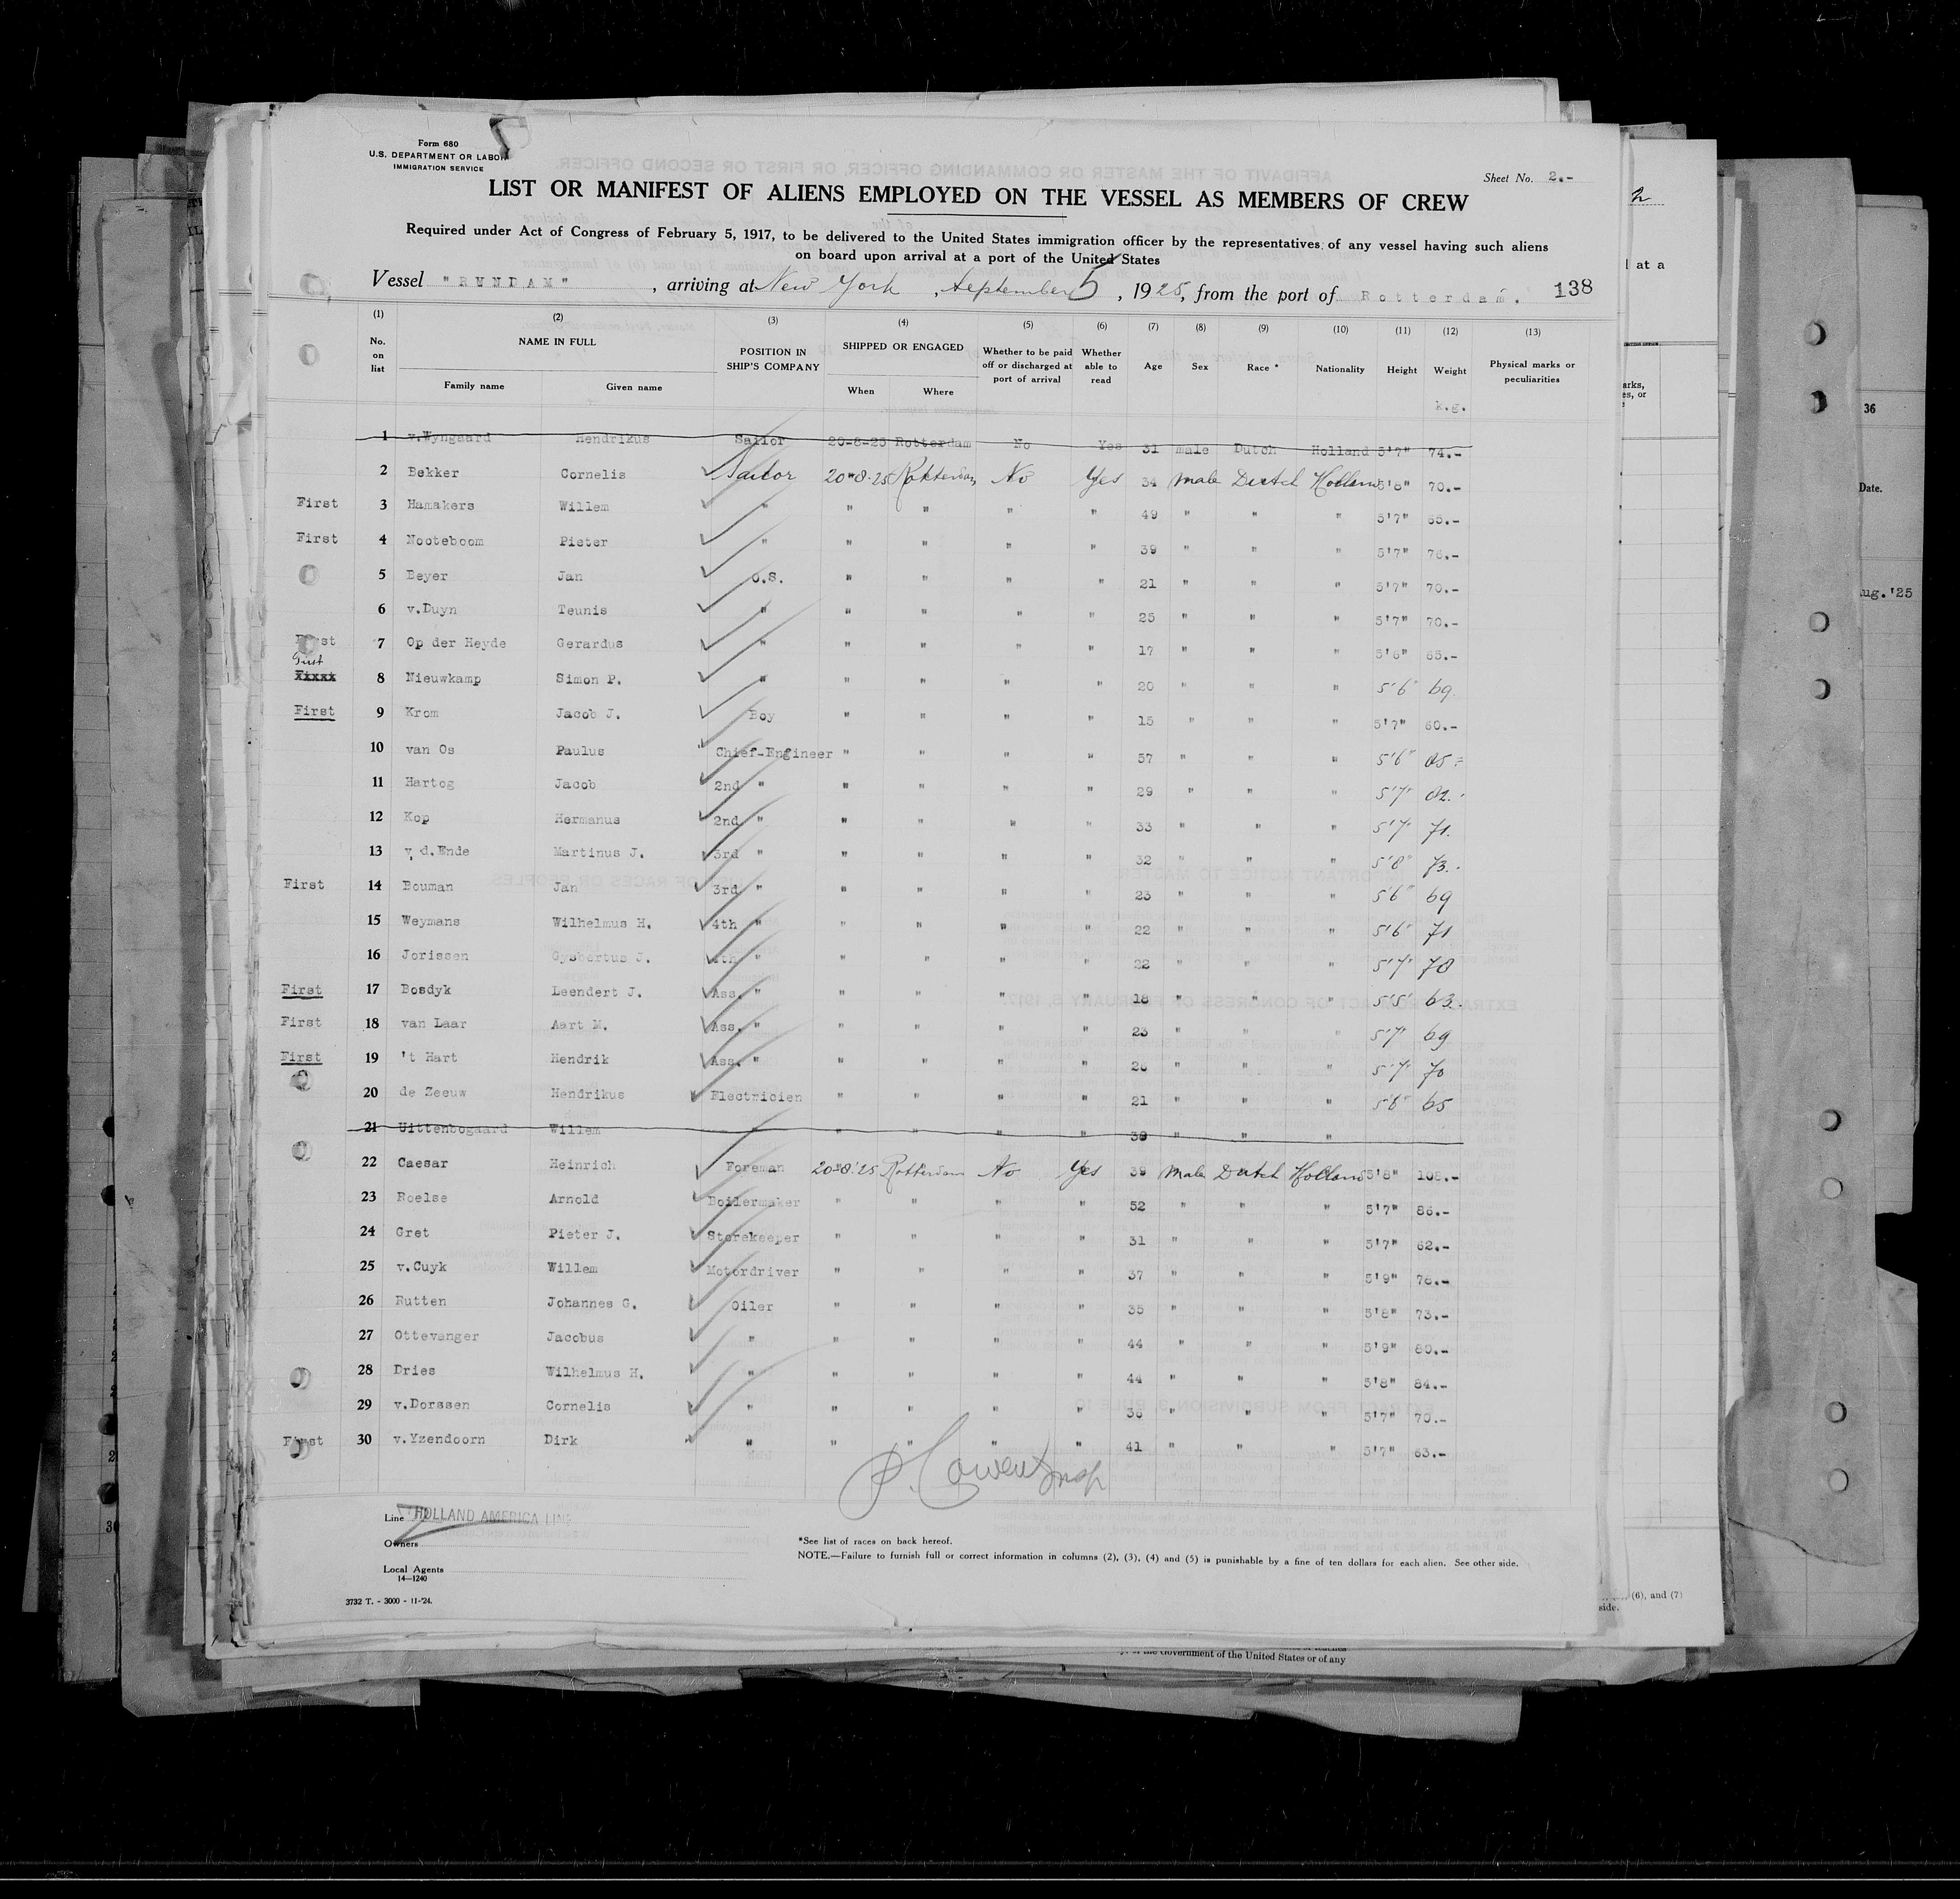 Form 680
U.S. DEPARTMENT OF LABOR
IMMIGRATION SERVICE
Sheet No. 2.-
LIST OR MANIFEST OF ALIENS EMPLOYED ON THE VESSEL AS MEMBERS OF CREW
Required under Act of Congress of February 5, 1917, to be delivered to the United States immigration officer by the representatives of any vessel having such aliens
on board upon arrival at a port of the United States
Vessel "RYNDAM", arriving at New York, September 5, 1925, from the port of Rotterdam. 138
(1) (2) (3) (4) (5) (6) (7) (8) (9) (10) (11) (12) (13)
No. on list NAME IN FULL Family name Given name POSITION IN SHIP'S COMPANY SHIPPED OR ENGAGED When Where Whether to be paid off or discharged at port of arrival Whether able to read Age Sex Race * Nationality Height Weight Physical marks or peculiarities
k.g.
1 v.Wyngaard Hendrikus Sailor 20-8-25 Rotterdam No Yes 31 male Dutch Holland 5'7" 74.-
2 Bekker Cornelis Sailor 20-8-25 Rotterdam No Yes 34 Male Dutch Holland 5'8" 70.-
First 3 Hamakers Willem " " " " " 49 " " " 5'7" 65.-
First 4 Nooteboom Pieter " " " " " 39 " " " 5'7" 76.-
5 Beyer Jan O.S. " " " " 21 " " " 5'7" 70.-
6 v.Duyn Teunis " " " " " 25 " " " 5'7" 70.-
First 7 Op der Heyde Gerardus " " " " " 17 " " " 5'6" 65.-
First
xxxxx 8 Nieuwkamp Simon P. " " " " " 20 " " " 5'6" 69
First 9 Krom Jacob J. Boy " " " " 15 " " " 5'7" 60.-
10 van Os Paulus Chief-Engineer " " " " 57 " " " 5'6" 85
11 Hartog Jacob 2nd " " " " " 29 " " " 5'7" 82
12 Kop Hermanus 2nd " " " " " 33 " " " 5'7" 71
13 v.d.Ende Martinus J. 3rd " " " " " 32 " " " 5'8" 73
First 14 Bouman Jan 3rd " " " " " 23 " " " 5'6" 69
15 Weymans Wilhelmus H. 4th " " " " " 22 " " " 5'6" 71
16 Jorissen Gysbertus J. 4th " " " " " 22 " " " 5'7" 78
First 17 Bosdyk Leendert J. Ass. " " " " " 18 " " " 5'5" 63
First 18 van Laar Aart M. Ass. " " " " " 23 " " " 5'7" 69
First 19 't Hart Hendrik Ass. " " " " " " " " 5'7" 70
20 de Zeeuw Hendrikus Electricien " " " " 21 " " " 5'6" 65
21 Uittenbogaard Willem " " " " " 38 " " "
22 Caesar Heinrich Foreman 20-8-25 Rotterdam No Yes 39 Male Dutch Holland 5'8" 108.-
23 Roelse Arnold Boilermaker " " " " 52 " " " 5'7" 86.-
24 Gret Pieter J. Storekeeper " " " " 31 " " " 5'7" 62.-
25 v.Cuyk Willem Motordriver " " " " 37 " " " 5'9" 78.-
26 Rutten Johannes G. Oiler " " " " 35 " " " 5'8" 73.-
27 Ottevanger Jacobus " " " " " 44 " " " 5'9" 80.-
28 Dries Wilhelmus H. " " " " " 44 " " " 5'8" 84.-
29 v.Dorssen Cornelis " " " " " 36 " " " 5'7" 70.-
First 30 v.Yzendoorn Dirk " " " " " 41 " " " 5'7" 63.-
Line HOLLAND AMERICA LINE
Owners
Local Agents
14-1240
*See list of races on back hereof.
NOTE.—Failure to furnish full or correct information in columns (2), (3), (4) and (5) is punishable by a fine of ten dollars for each alien. See other side.
3732 T. - 3000 - 11-'24.
2
at a
36
Date.
Aug.'25
(6), and (7)
side.
Government of the United States or of any